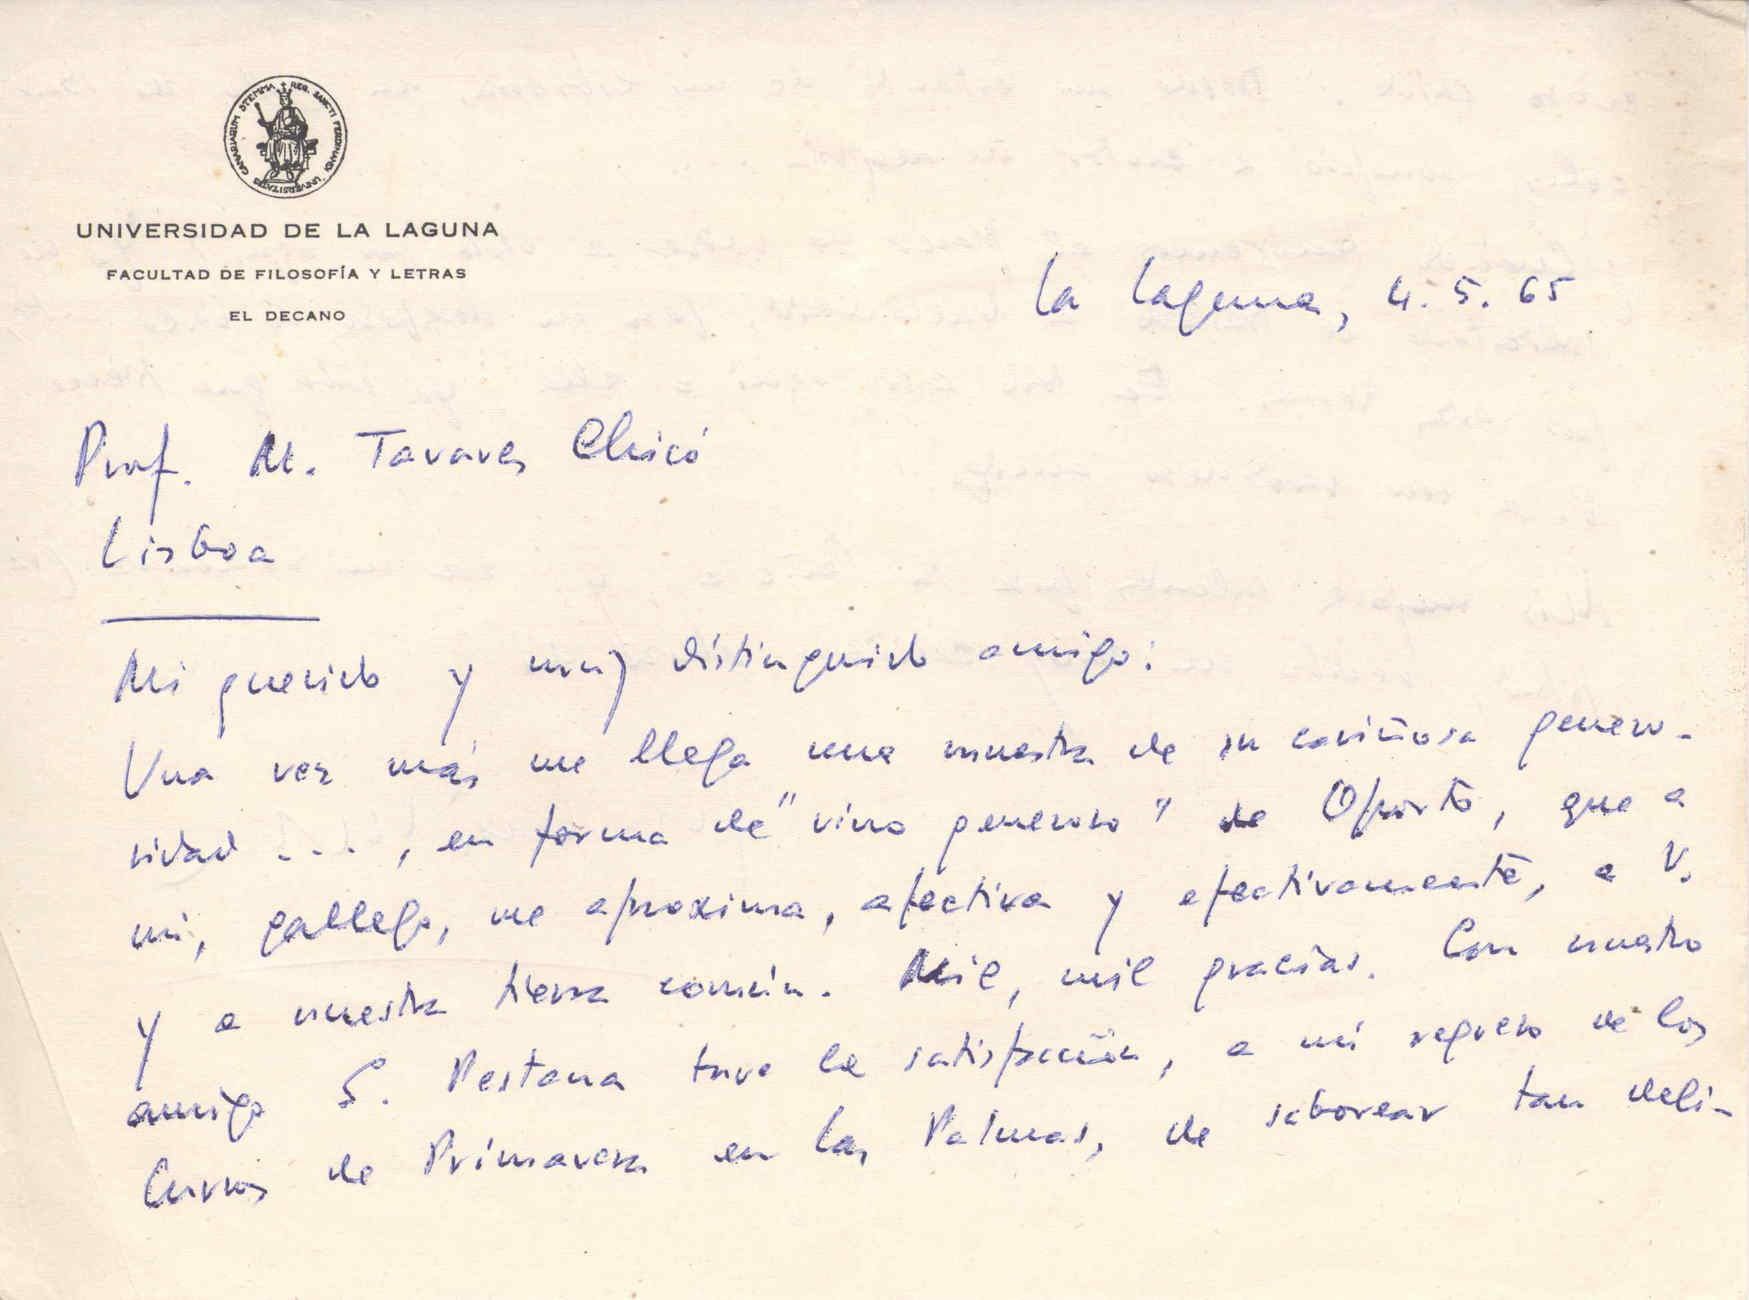 CANARIARUM STEMMA REG. SANCTI FERDINANDI UNIVERSITATIS
UNIVERSIDAD DE LA LAGUNA
FACULTAD DE FILOSOFÍA Y LETRAS
EL DECANO
La Laguna, 4. 5. 65
Prof. M. Tavares Chicó
Lisboa
Mi querido y muy distinguido amigo:
Una vez más me llega una muestra de su cariñosa genero-
sidad ..., en forma de "vino generoso" de Oporto, que a
mí, gallego, me aproxima, afectiva y efectivamente, a V.
y a nuestra tierra común. Mil, mil gracias. Con nuestro
amigo S. Pestana tuve la satisfacción, a mi regreso de los
Cursos de Primavera en Las Palmas, de saborear tan deli-